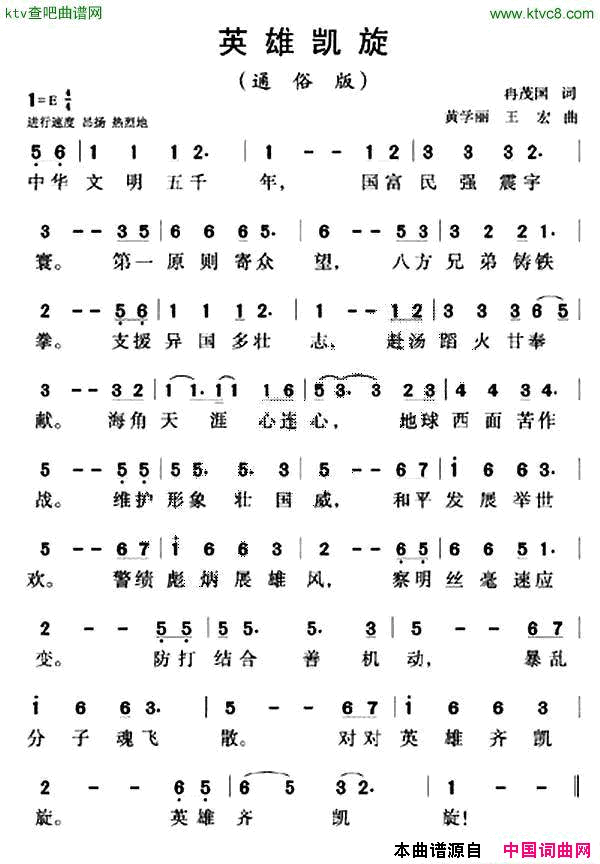 ktv查吧曲谱网 www.ktvc8.com
英雄凯旋
(通俗版)
1=E 4/4 冉茂国 词
进行速度 昂扬 热烈地 黄学丽 王宏 曲
5 6 | 1 1 1 2. | 1 - - 1 2 | 3 3 3 3 2. |
中华 文明五千 年, 国富 民强震宇
3 - - 3 5 | 6 6 6 6 5. | 6 - - 5 3 | 3 3 2 2 1. |
寰。 第一 原则寄众 望, 八方 兄弟铸铁
2 - - 5 6 | 1 1 1 2. | 1 - - 1 2 | 3 3 3 6 5 |
拳。 支援 异国多壮 志, 赴汤 蹈火甘奉
3 - - 3 2 | 1 1. 1 1 1 6 | 5 3. 3. 2 3 | 2 2 2 3. |
献。 海角 天涯 心连 心, 地球 西面苦作
5 - - 5 5 | 5 5. 5. 3 | 5 - - 6 7 | 1 6 6 3. |
战。 维护 形象 壮国 威, 和平 发展举世
5 - - 6 7 | 1 6 6 6 3 | 2 - - 6 5 | 6 6 6 5 1. |
欢。 警绩 彪炳展雄 风, 察明 丝毫速应
2 - - 5 5 | 5 5. 5. 3 | 5 - - 6 7 |
变。 防打 结合 善机 动, 暴乱
1 6 6 3. | 5 - - 6 7 | 1 6 6 3 |
分子魂飞 散。 对对 英雄齐凯
2 - - 6 5 | 6 5 3 2. | 1 - - ‖
旋。 英雄 齐 凯 旋!
本曲谱源自 中国词曲网